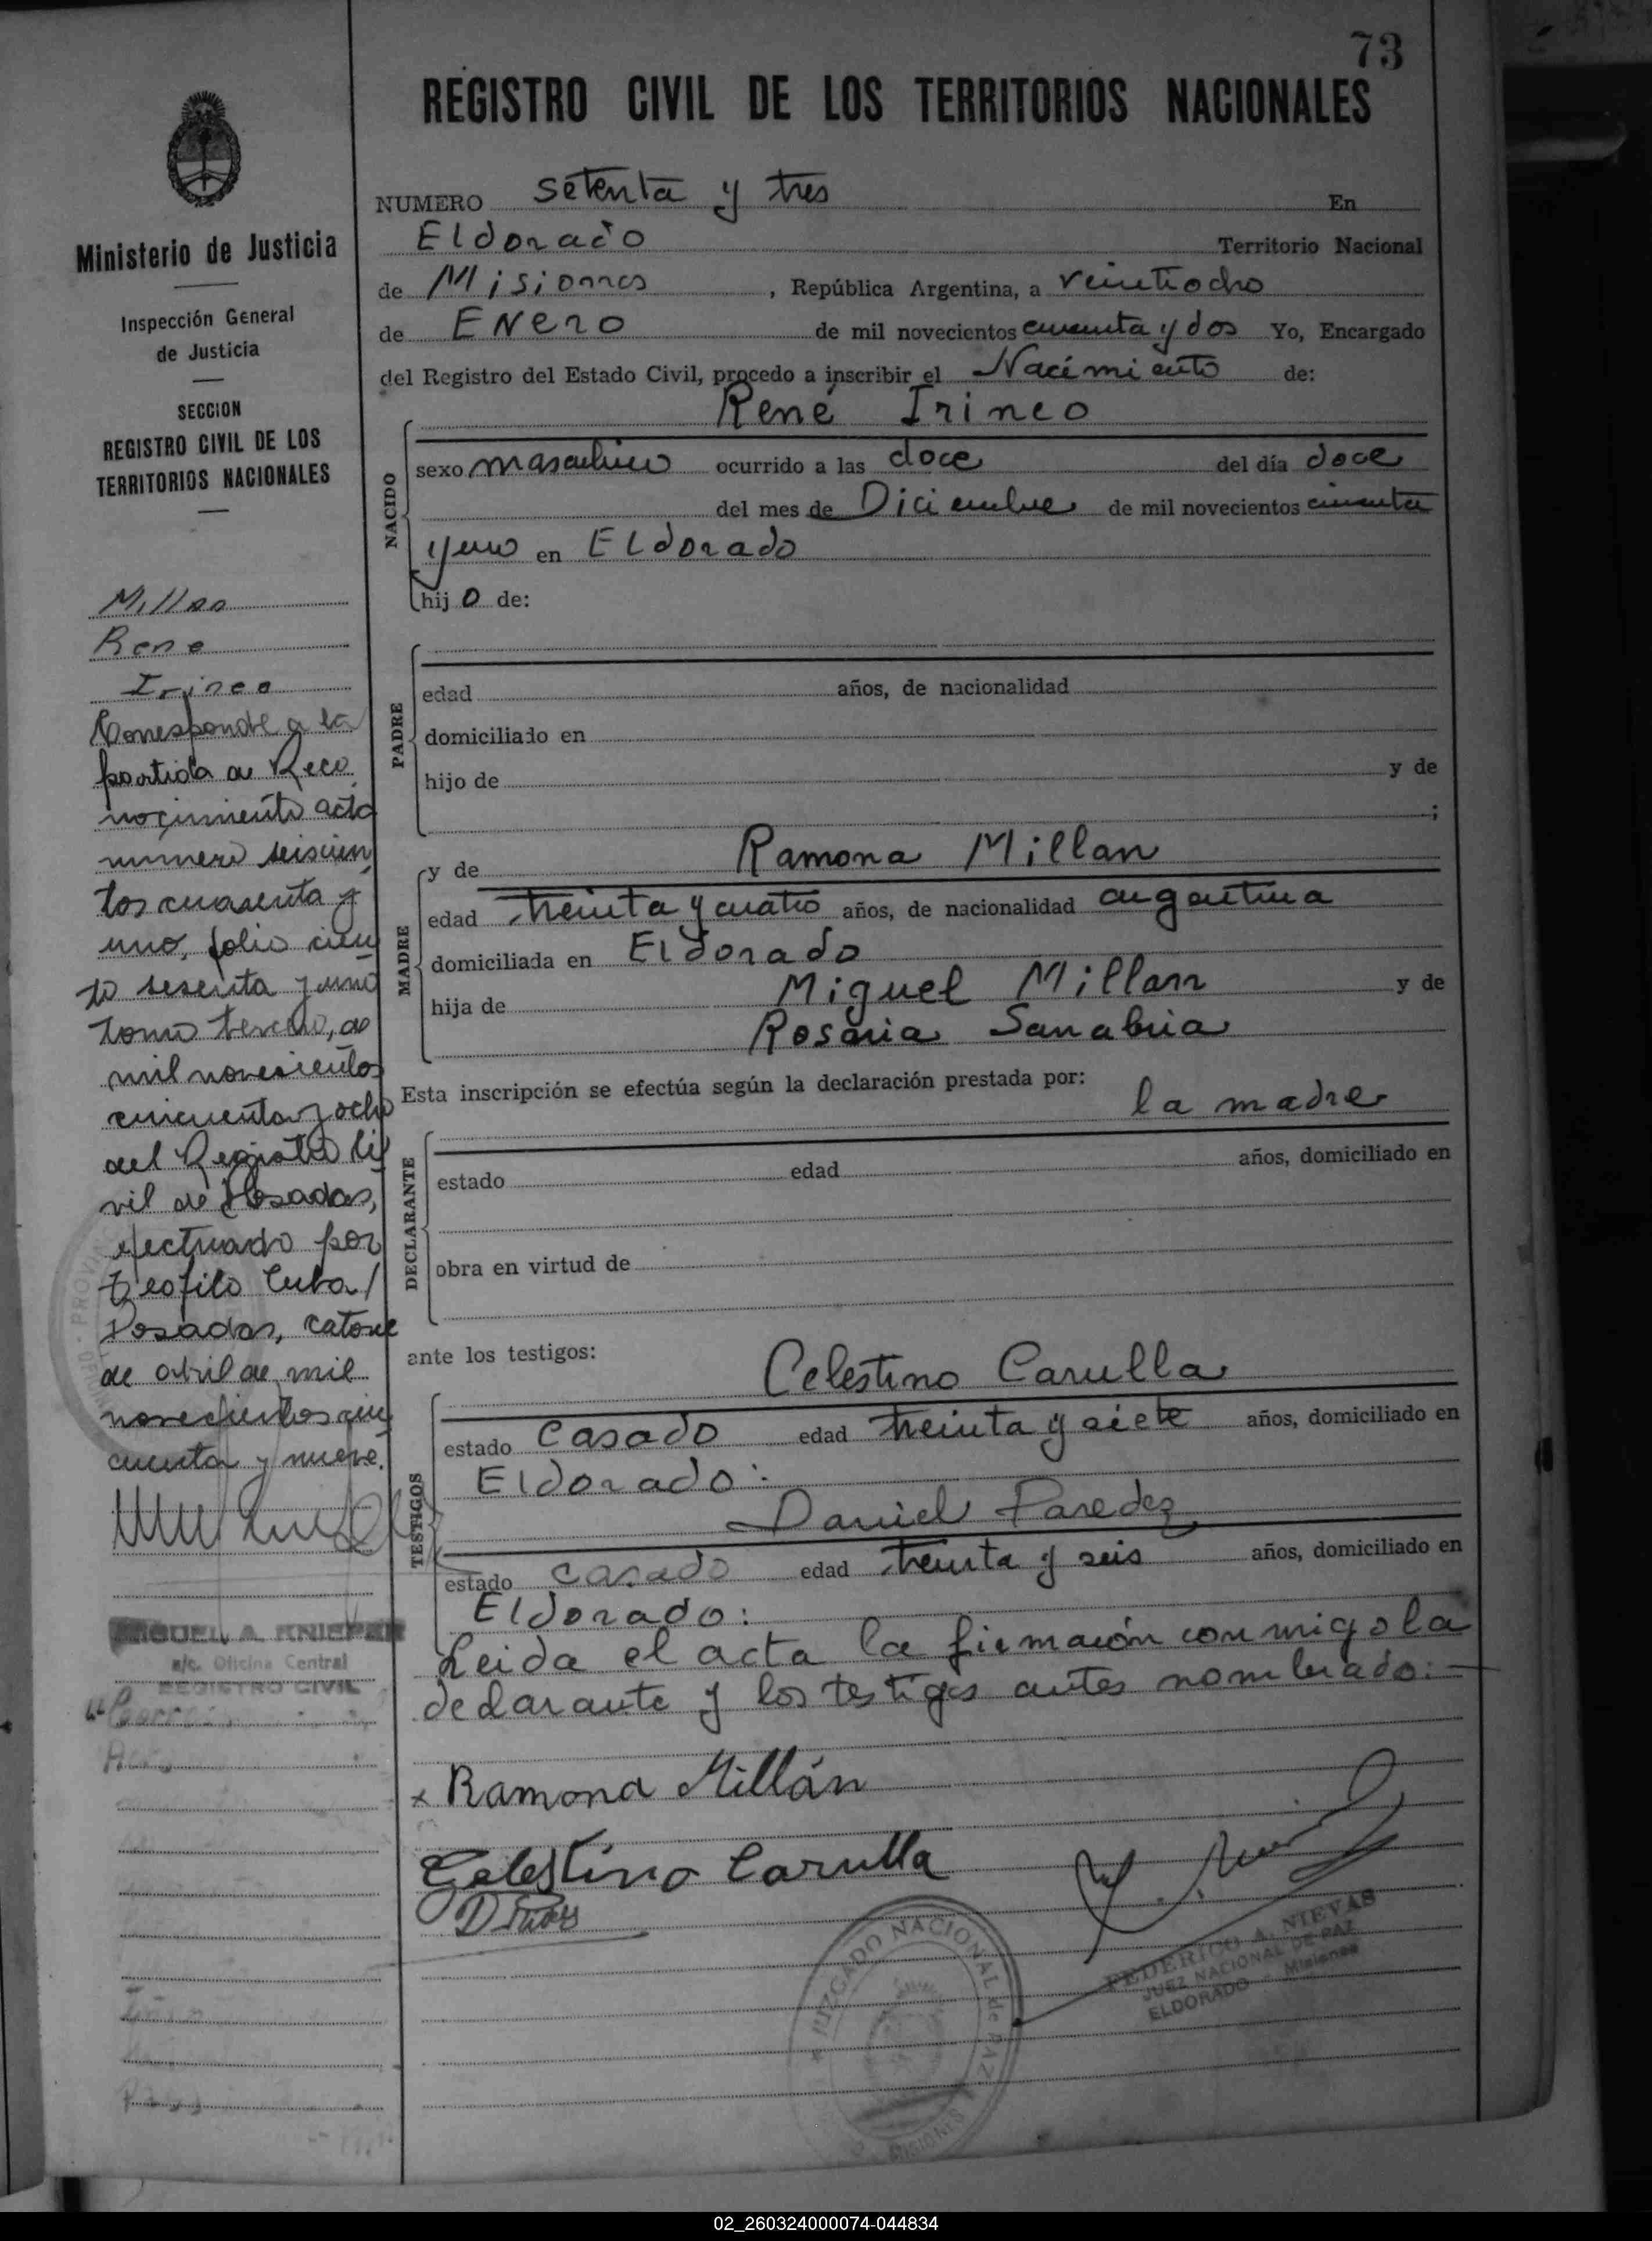 73
REGISTRO CIVIL DE LOS TERRITORIOS NACIONALES
Ministerio de Justicia
Inspección General
de Justicia
SECCION
REGISTRO CIVIL DE LOS
TERRITORIOS NACIONALES
Millan
Rene
Irineo
Corresponde a la
partida de Reco
nocimiento acta
numero seiscien
tos cuarenta y
uno, folio cien
to sesenta y uno
tomo tercero, de
mil novecientos
cincuenta y ocho
del Registro Ci
vil de Posadas,
efectuado por
Teofilo Cuba/
Posadas, catorce
de abril de mil
novecientos cin
cuenta y nueve.
MIGUEL A. KNIEPER
a/c. Oficina Central
REGISTRO CIVIL
NUMERO setenta y tres En
Eldorado Territorio Nacional
de Misiones, República Argentina, a veintiocho
de Enero de mil novecientos cincuenta y dos Yo, Encargado
del Registro del Estado Civil, procedo a inscribir el Nacimiento de:
René Irineo
NACIDO
sexo masculino ocurrido a las doce del día doce
del mes de Diciembre de mil novecientos cincuenta
y uno en Eldorado
hij o de:
PADRE
edad años, de nacionalidad
domiciliado en
hijo de y de
;
MADRE
y de Ramona Millan
edad treinta y cuatro años, de nacionalidad argentina
domiciliada en Eldorado
hija de Miguel Millan y de
Rosaria Sanabria
Esta inscripción se efectúa según la declaración prestada por:
la madre
DECLARANTE
estado edad años, domiciliado en
obra en virtud de
ante los testigos:
Celestino Carulla
TESTIGOS
estado Casado edad treinta y siete años, domiciliado en
Eldorado:
Daniel Paredez
estado casado edad treinta y seis años, domiciliado en
Eldorado:
Leida el acta la firmarón conmigo la
declarante y los testigos antes nombrado:—
x Ramona Millán
Celestino Carulla
JUZGADO NACIONAL de PAZ
MISIONES
FEDERICO A. NIEVAS
JUEZ NACIONAL DE PAZ
ELDORADO - Misiones
02_260324000074-044834